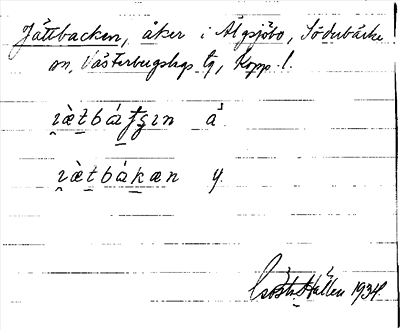 Jättbacken, åker i Älgsjöbo, Söderbärke
sn, Västerbergslags tg, Kopp. l.
ɪ̯ὰt̠bátʃɡɪn å
ɪ̯ὰt̠bák̠æn y.
Gösta Hallen 1934.